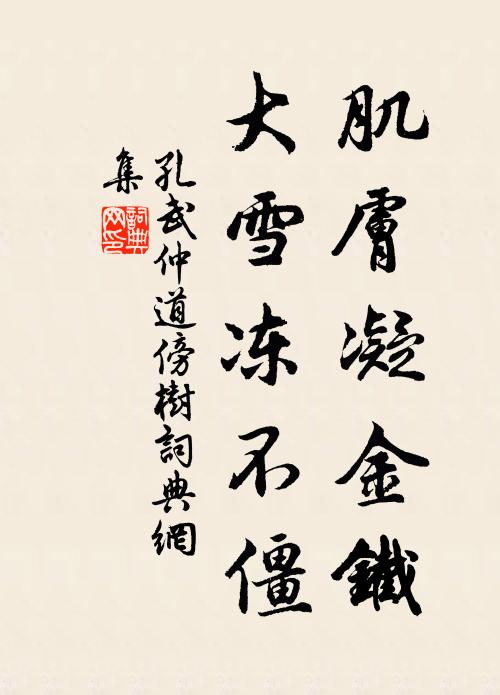 肌膚凝金鐵
大雪冻不僵
孔武仲道傍樹詞典網
集
詞典
网印